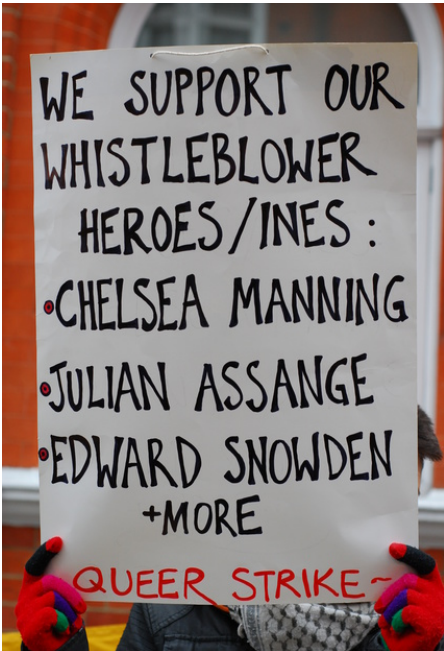 WE SUPPORT OUR
WHISTLEBLOWER
HEROES/INES:
•CHELSEA MANNING
•JULIAN ASSANGE
•EDWARD SNOWDEN
+MORE
QUEER STRIKE~